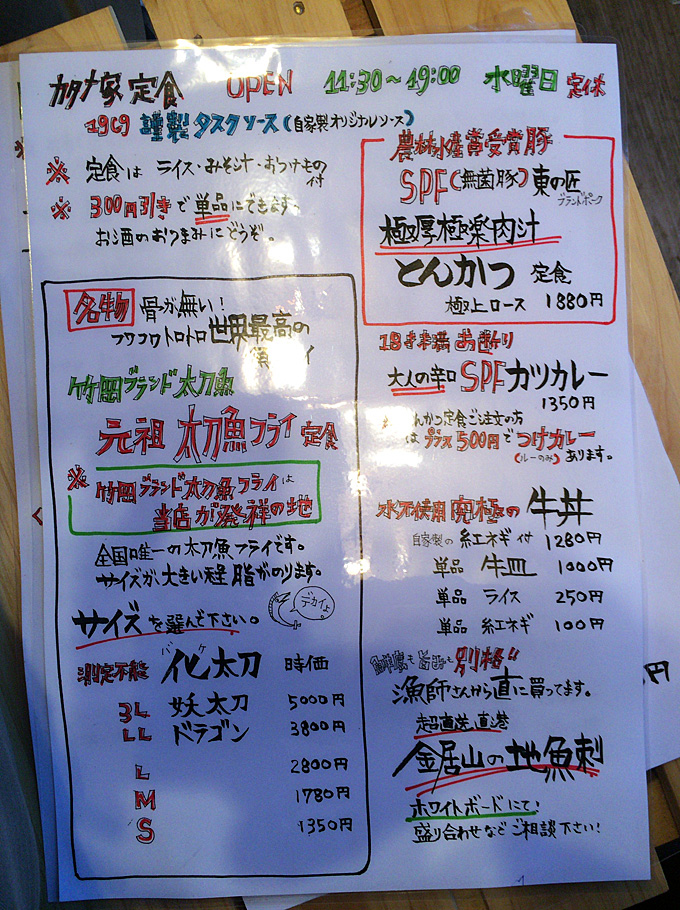 カタナ家 定食 OPEN 11:30〜19:00 水曜日 定休
謹製 タスクソース(自家製オリジナルソース)
※ 定食は ライス・みそ汁・おつけもの付
※ 300円引きで単品にできます。
お酒のおつまみにどうぞ。
名物 骨が無い!
フワフワトロトロ世界最高の
竹岡ブランド太刀魚
元祖 太刀魚フライ 定食
※ 竹岡ブランド太刀魚フライは
当店が発祥の地
全国唯一の太刀魚フライです。
サイズが大きい程 脂がのります。
デカイよ
サイズを選んで下さい。
測定不能 化太刀 時価
バケ
3L 妖太刀 5000円
LL ドラゴン 3800円
L 2800円
M 1780円
S 1350円
農林水産賞受賞豚
SPF(無菌豚)東の匠
ブランドポーク
極厚極楽肉汁
とんかつ 定食
極上ロース 1880円
18才未満お断り
大人の辛口 SPFカツカレー
1350円
とんかつ定食ご注文の方
はプラス500円でつけカレー
(ルーのみ) あります。
水不使用 究極の 牛丼
自家製の 紅ネギ付 1280円
単品 牛皿 1000円
単品 ライス 250円
単品 紅ネギ 100円
別格"
漁師さんから直に買ってます。
超直送直港
金居山の地魚刺
ホワイトボードにて!
盛り合わせなどご相談下さい!
円